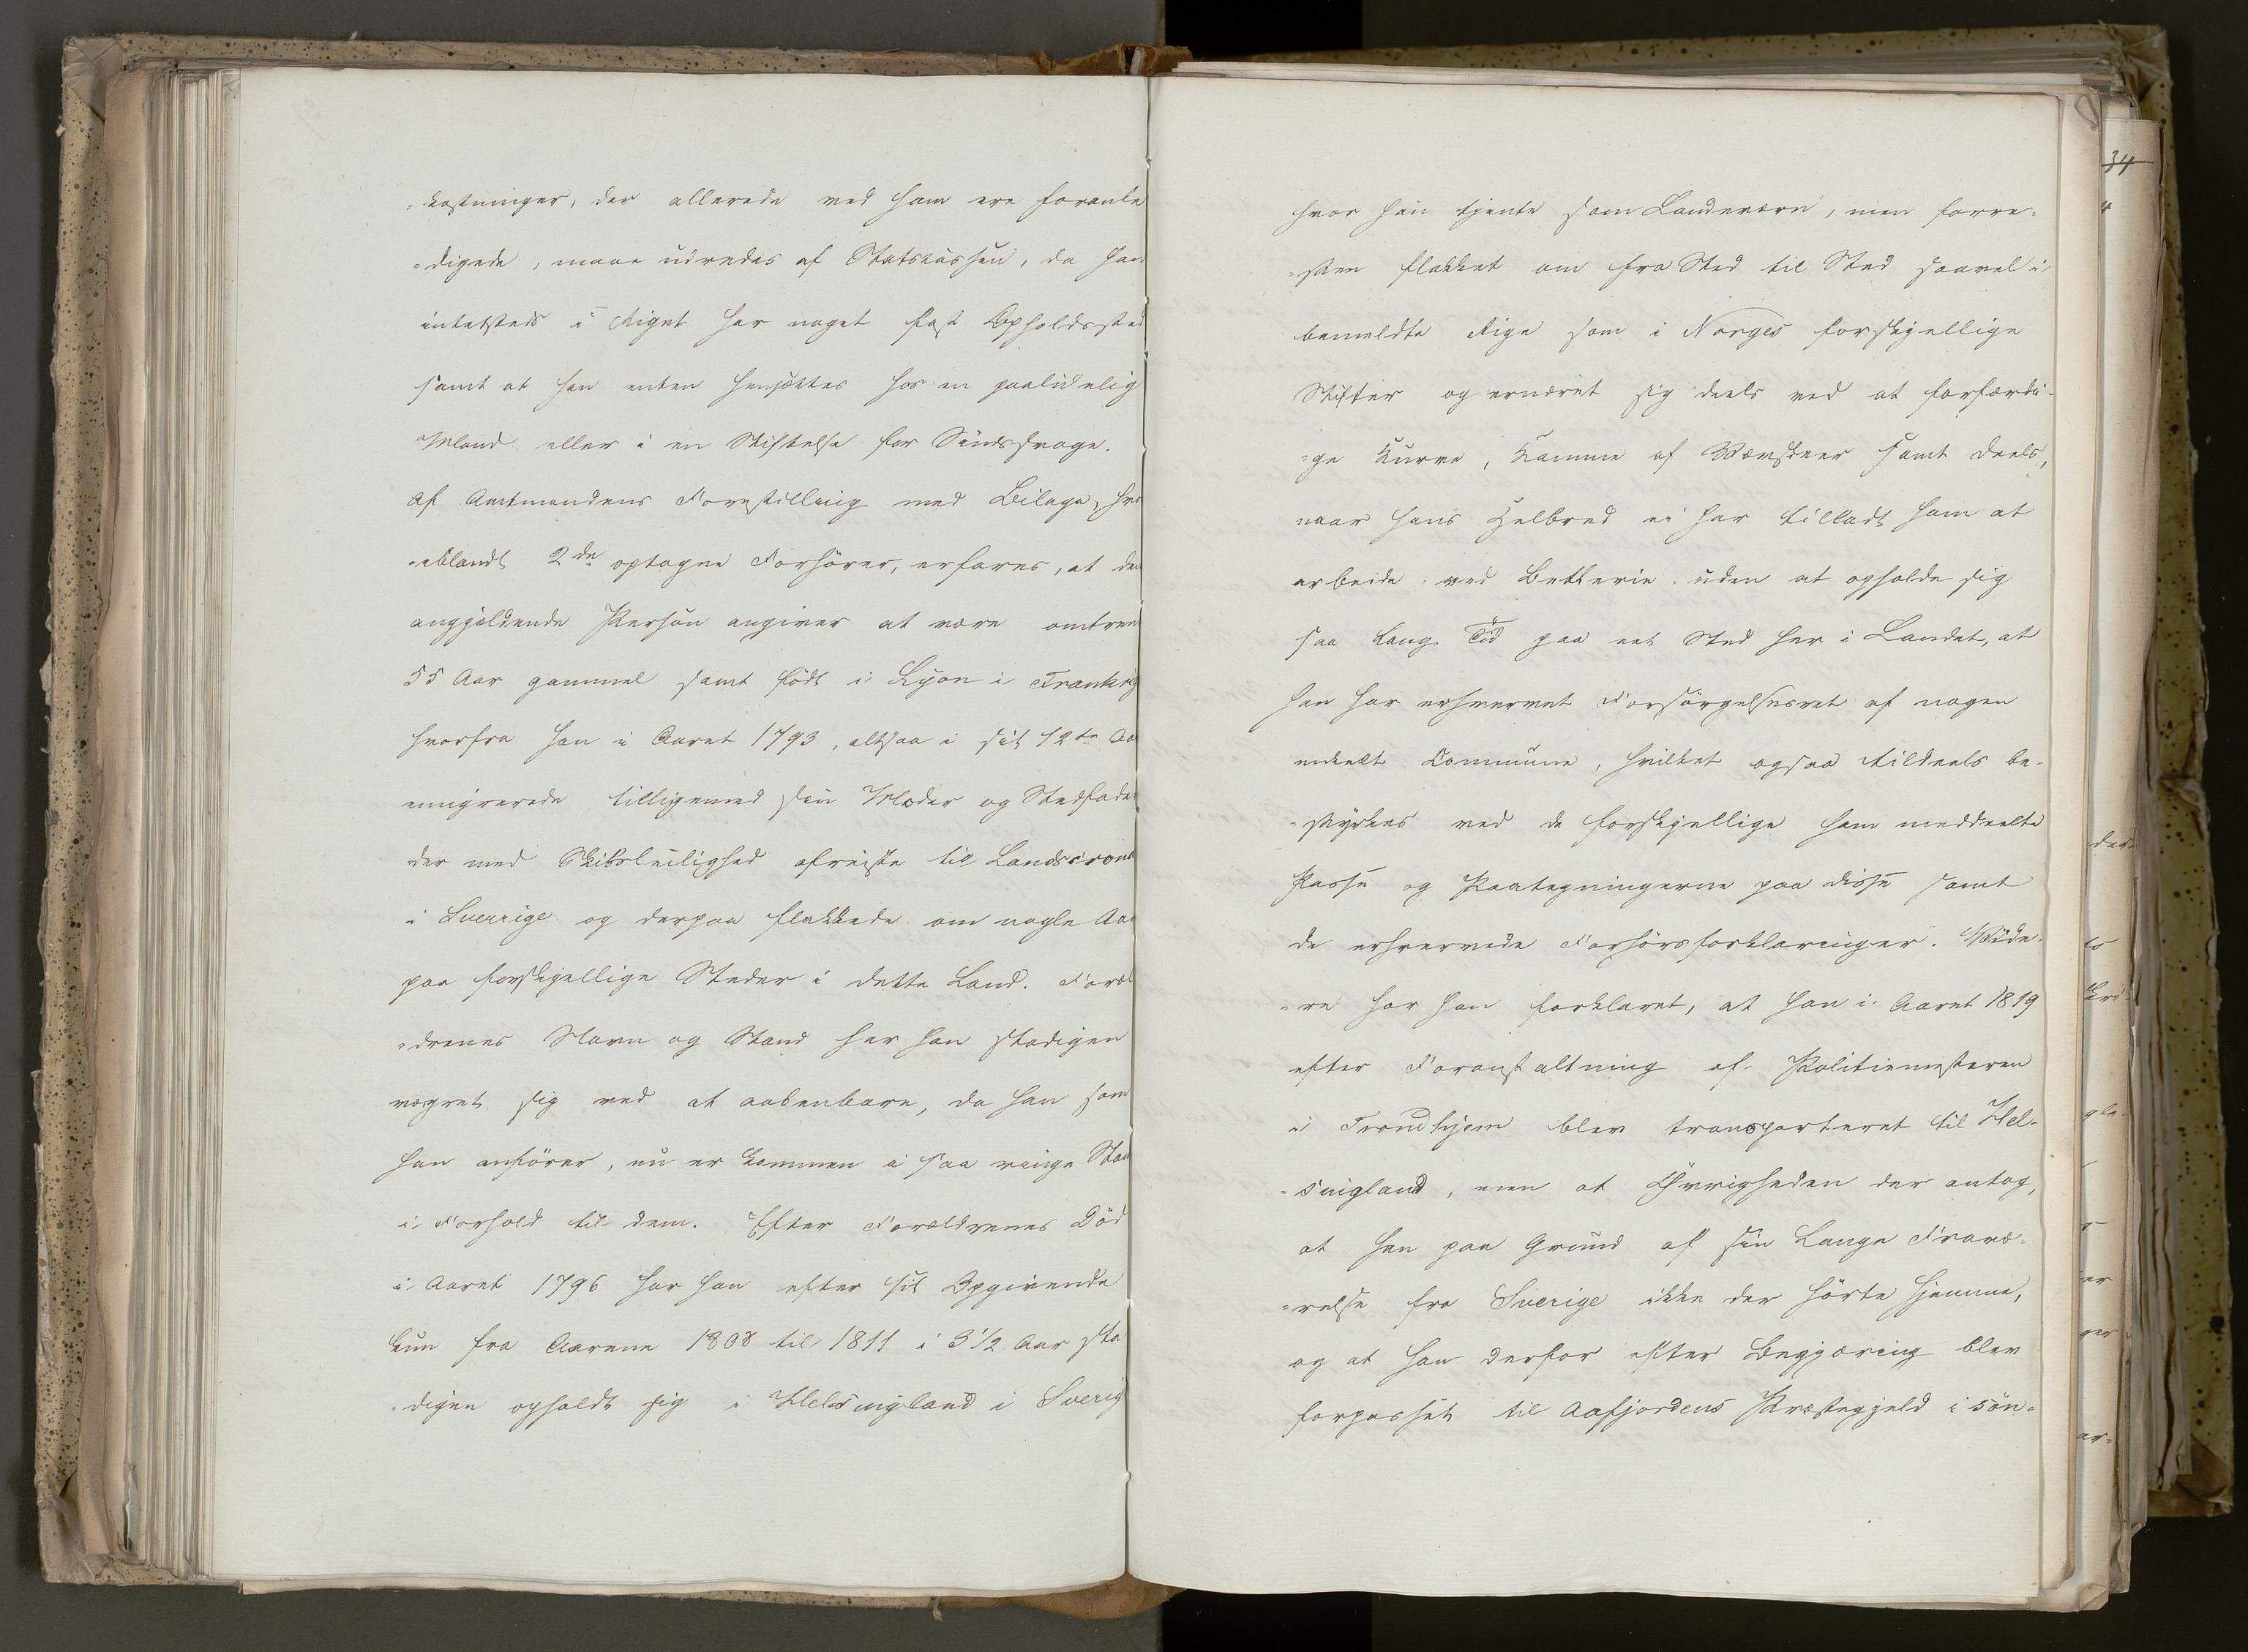 -kostninger, der allerede ved ham ere foranle
-digede, maae udredes af Statskassen, da han
intetsteds i Riget har noget fast Opholdssted
samt at han enten hensættes hos en paalidelig
Mand eller i en Stiftelse for Sindssvage.
Af Amtmandens Forestilling med Bilage, hvi
-iblandt 2de optagne Forhörer, erfares, at den
angjældende Person angiver at være omtrent
55 Aar gammel samt födt i Lyon i Frankrig
hvorfra han i Aaret 1793, altsaa i sit 12te Aar
emigrerede tilligemed sin Moder og Stedfader
der med Skibsleilighed afreiste til Landscrona
i Sverrige og derpaa flakkede om nogle Aar
paa forskjellige Steder i dette Land. Foræl
-drenes Navn og Stand har han stadigen
vægret sig ved at aabenbare, da han som
han anförer, nu er kommen i saa ringe Stand
i Forhold til dem. Efter Forældrenes Död
i Aaret 1796 har han efter sit Opgivende
kun fra Aarene 1808 til 1811 i 3 1/2 Aar sta
-digen opholdt sig i Helsingland i Sverig
hvor han tjente som Landeværn, men forre-
-sten flakket om fra Sted til Sted saavel i
bemeldte Rige som i Norges forskjellige
Stifter og ernæret sig deels ved at forfærdi-
-ge Kurve, Kamme af Vævskeer samt deels,
naar hans Helbred ei har tilladt ham at
arbeide ved Betlerie uden at opholde sig
saa lang Tid paa eet Sted her i Landet, at
han har erhvervet Forsörgelsesret af nogen
enkelt Commune, hvilket ogsaa tildeels be-
-styrkes ved de forskjellige ham meddeelte
Passe og Paategningerne paa disse samt
de erhvervede Forhörsforklaringer. Vide-
-re har han forklaret, at han i Aaret 1819
efter Foranstaltning af Politiemesteren
i Trondhjem blev transporteret til Hel-
-singland, men at Övrigheden der antog,
at han paa Grund af sin lange Fravæ-
-relse fra Sverige ikke der hörte hjemme,
og at han derfor efter Begjæring blev
forpasset til Aafjordens Præstegjeld i sön-
34